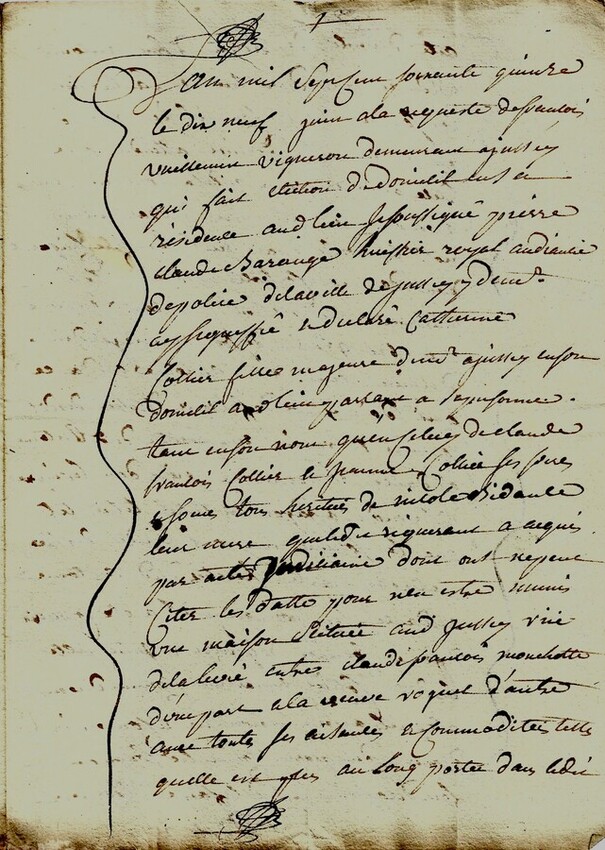 1
L'an mil sept cent soixante quinze
le dix neuf juin a la requeste de francois
vuillemin vigneron demeurant a jussey
qui fait election de domicil en sa
residence aud lieu Je soussigné pierre
claude Barange huissier royal audiancié
de police de la ville de jussey y demt
ay signiffié et declaré a Catherine
Collier fille majeure demt a jussey en son
domicil aud lieu parlant a sa personne
tant en son nom qu'en celuy de claude
francois Collier et jeanne Collier ses freres
et soeur tous heritiers de nicole Bidault
leur mere que ledit requerant a acquis
par acte Judiciaire dont on ne peut
citer les datte pour n'en estre munis
une maison scituée aud Jussey rüe
entre claude francois monchotte
d'une part et la veuve voquel d'autre
avec toutes ses aisances et commodités telle
quelle est plus au long portée dans ledit